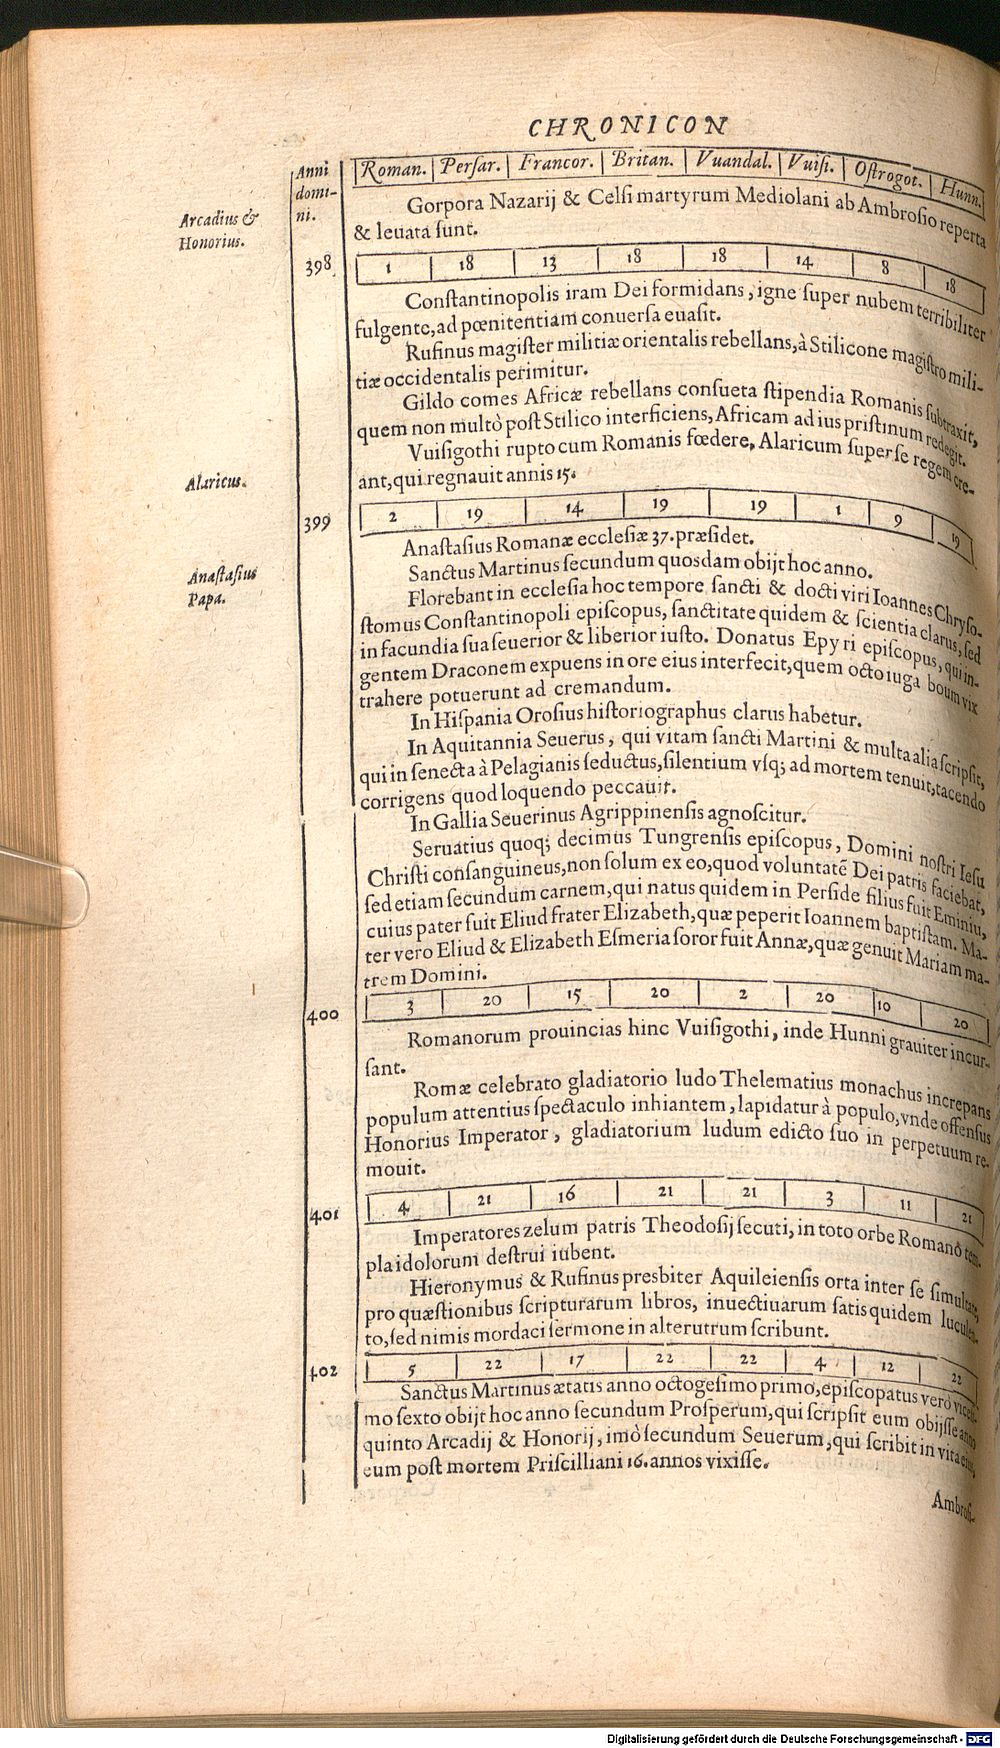 CHRONICON
Anni domini. | Roman. | Persar. | Francor. | Britan. | Vuandal. | Vuisi. | Ostrogot. | Hunn.
Arcadius &
Honorius.
Gorpora Nazarij & Celsi martyrum Mediolani ab Ambrosio reperta
& leuata sunt.
398 | 1 | 18 | 13 | 18 | 18 | 14 | 8 | 18
Constantinopolis iram Dei formidans, igne super nubem terribiliter
fulgente, ad pœnitentiam conuersa euasit.
Rufinus magister militiæ orientalis rebellans, à Stilicone magistro mili-
tiæ occidentalis perimitur.
Gildo comes Africæ rebellans consueta stipendia Romanis subtraxit,
quem non multò post Stilico interficiens, Africam ad ius pristinum redegit.
Vuisigothi rupto cum Romanis fœdere, Alaricum super se regem cre-
Alaricus.
ant, qui regnauit annis 15.
399 | 2 | 19 | 14 | 19 | 19 | 1 | 9 | 19
Anastasius Romanæ ecclesiæ 37. præsidet.
Anastasius
Papa.
Sanctus Martinus secundum quosdam obijt hoc anno.
Florebant in ecclesia hoc tempore sancti & docti viri Ioannes Chryso-
stomus Constantinopoli episcopus, sanctitate quidem & scientia clarus, sed
in facundia sua seuerior & liberior iusto. Donatus Epyri episcopus, qui in-
gentem Draconem expuens in ore eius interfecit, quem octo iuga boum vix
trahere potuerunt ad cremandum.
In Hispania Orosius historiographus clarus habetur.
In Aquitannia Seuerus, qui vitam sancti Martini & multa alia scripsit,
qui in senecta à Pelagianis seductus, silentium vsq; ad mortem tenuit, tacendo
corrigens quod loquendo peccauit.
In Gallia Seuerinus Agrippinensis agnoscitur.
Seruatius quoq; decimus Tungrensis episcopus, Domini nostri Iesu
Christi consanguineus, non solum ex eo, quod voluntatē Dei patris faciebat,
sed etiam secundum carnem, qui natus quidem in Perside filius fuit Eminiu,
cuius pater fuit Eliud frater Elizabeth, quæ peperit Ioannem baptistam. Ma-
ter vero Eliud & Elizabeth Esmeria soror fuit Annæ, quæ genuit Mariam ma-
trem Domini.
400 | 3 | 20 | 15 | 20 | 2 | 20 | 10 | 20
Romanorum prouincias hinc Vuisigothi, inde Hunni grauiter incur-
sant.
Romæ celebrato gladiatorio ludo Thelematius monachus increpans
populum attentius spectaculo inhiantem, lapidatur à populo, vnde offensus
Honorius Imperator, gladiatorium ludum edicto suo in perpetuum re-
mouit.
401 | 4 | 21 | 16 | 21 | 21 | 3 | 11 | 21
Imperatores zelum patris Theodosij secuti, in toto orbe Romano tem-
pla idolorum destrui iubent.
Hieronymus & Rufinus presbiter Aquileiensis orta inter se simultate,
pro quæstionibus scripturarum libros, inuectiuarum satis quidem luculen-
to, sed nimis mordaci sermone in alterutrum scribunt.
402 | 5 | 22 | 17 | 22 | 22 | 4 | 12 | 22
Sanctus Martinus ætatis anno octogesimo primo, episcopatus verò vicesi-
mo sexto obijt hoc anno secundum Prosperum, qui scripsit eum obijsse anno
quinto Arcadij & Honorij, imò secundum Seuerum, qui scribit in vita eius,
eum post mortem Priscilliani 16. annos vixisse.
Ambrosi-
Digitalisierung gefördert durch die Deutsche Forschungsgemeinschaft - DFG